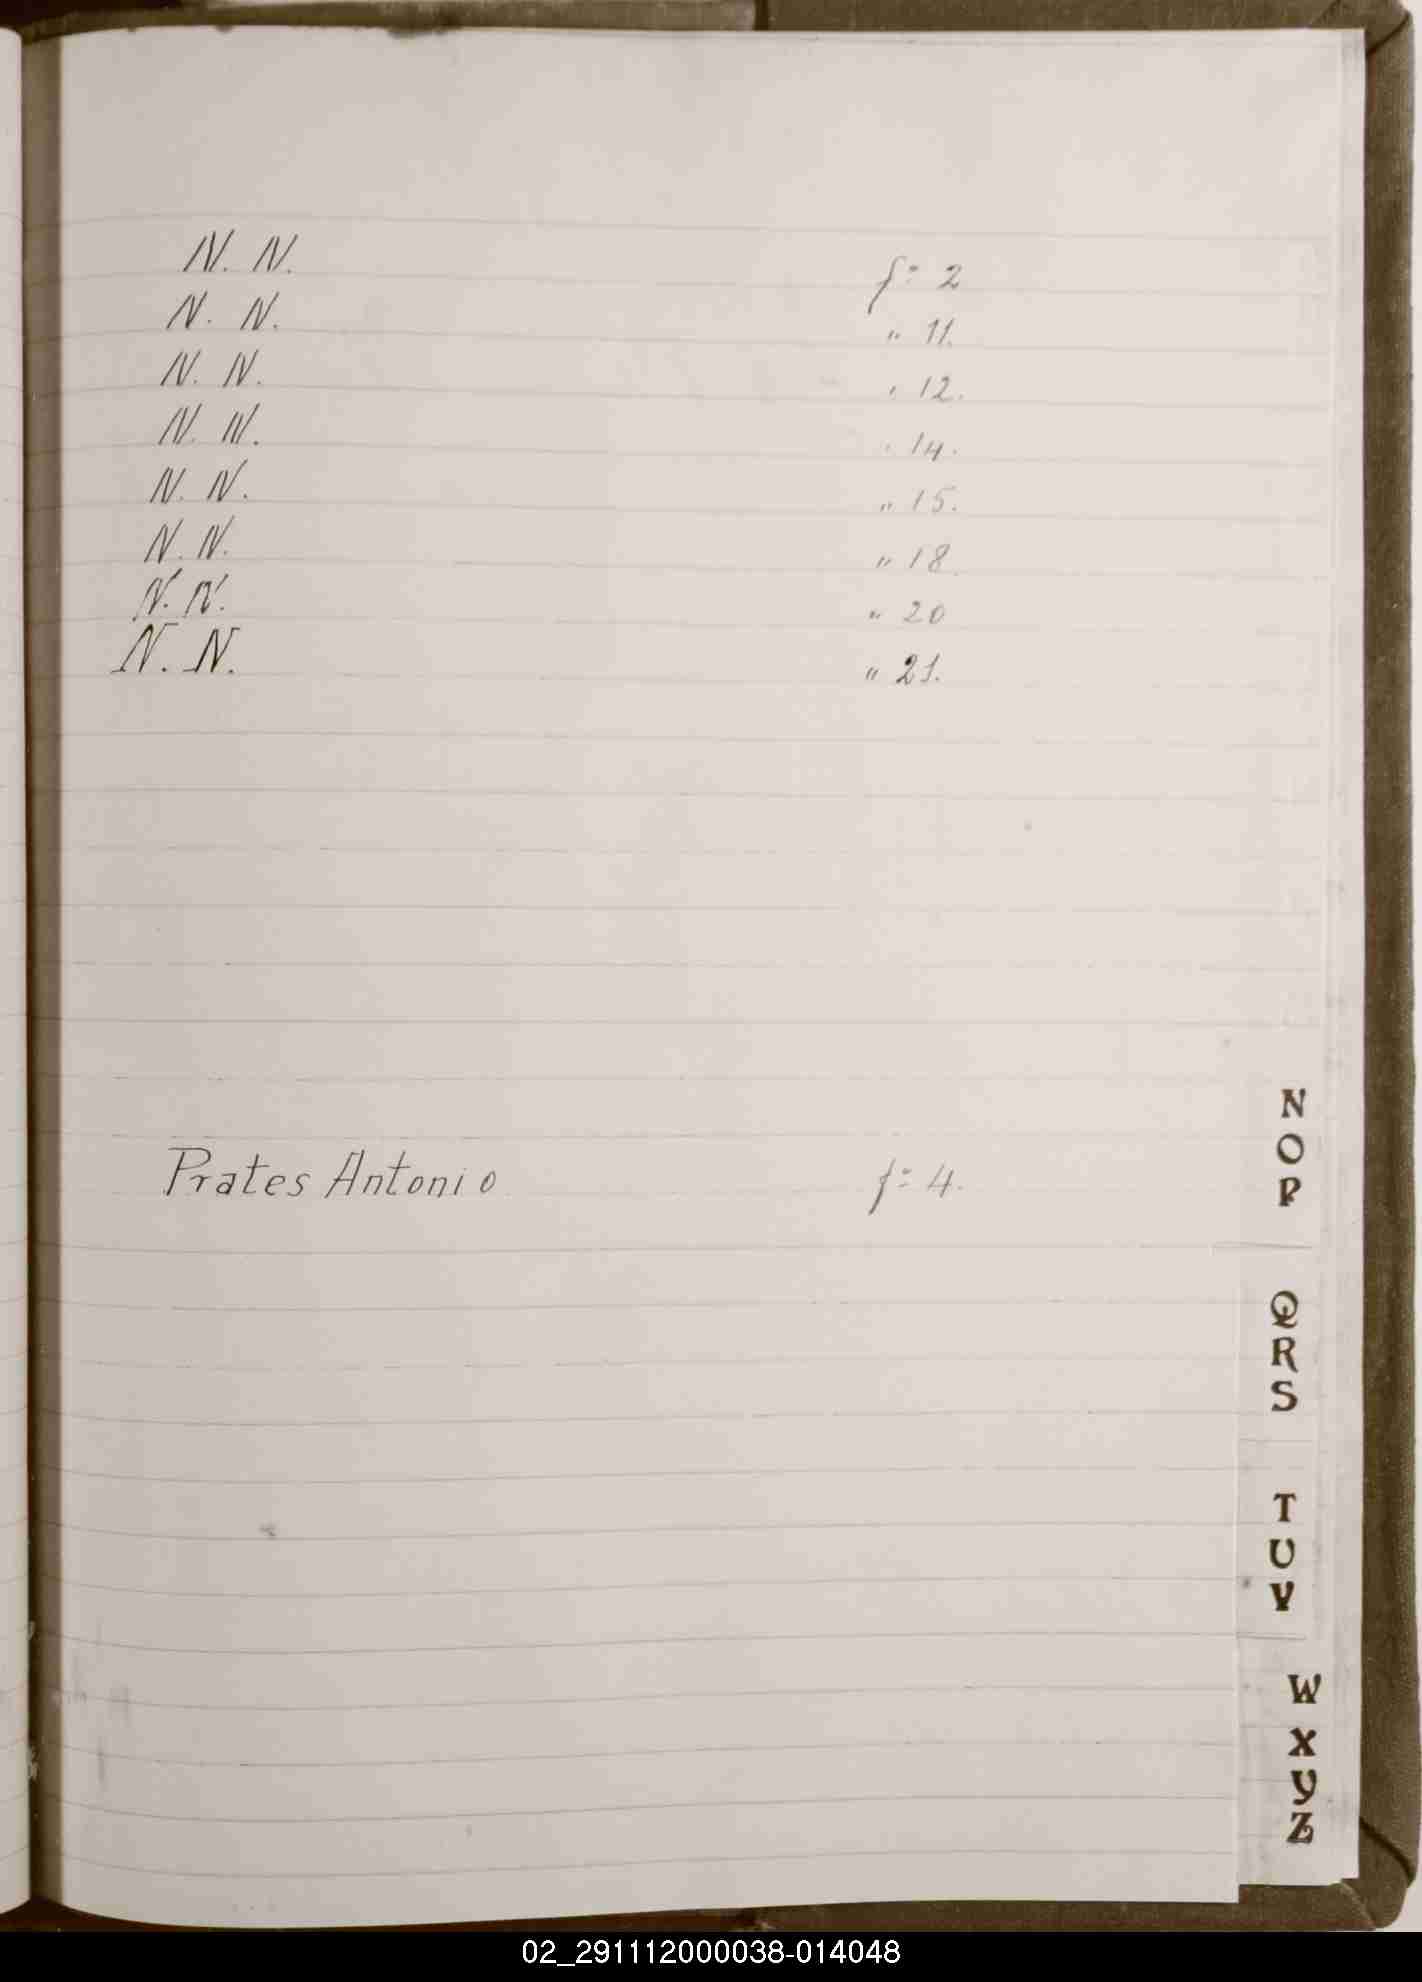 N. N. f: 2
N. N. " 11.
N. N. " 12.
N. N. " 14.
N. N. " 15.
N. N. " 18
N. N. " 20
N. N. " 21.
Prates Antonio f: 4.
N
O
P
Q
R
S
T
U
V
W
X
Y
Z
02_291112000038-014048